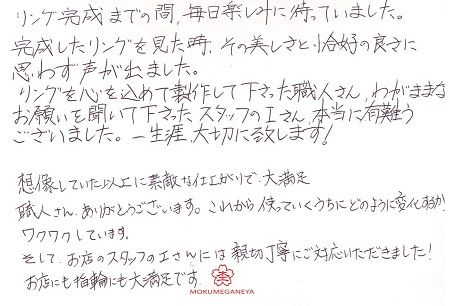 リング完成までの間,毎日楽しみに待っていました。
完成したリングを見た時,その美しさと恰好の良さに
思わず声が出ました。
リングを心を込めて製作して下さった職人さん,わがままな
お願いを聞いて下さったスタッフのIさん,本当に有難う
ございました。一生涯,大切に致します!
想像していた以上に素敵な仕上がりで、大満足
職人さん、ありがとうございます。これから使っていくうちにどのように変化するか、
ワクワクしています。
そして、お店のスタッフのIさんには親切丁寧にご対応いただきました!
お店にも指輪にも大満足です。
MOKUMEGANEYA